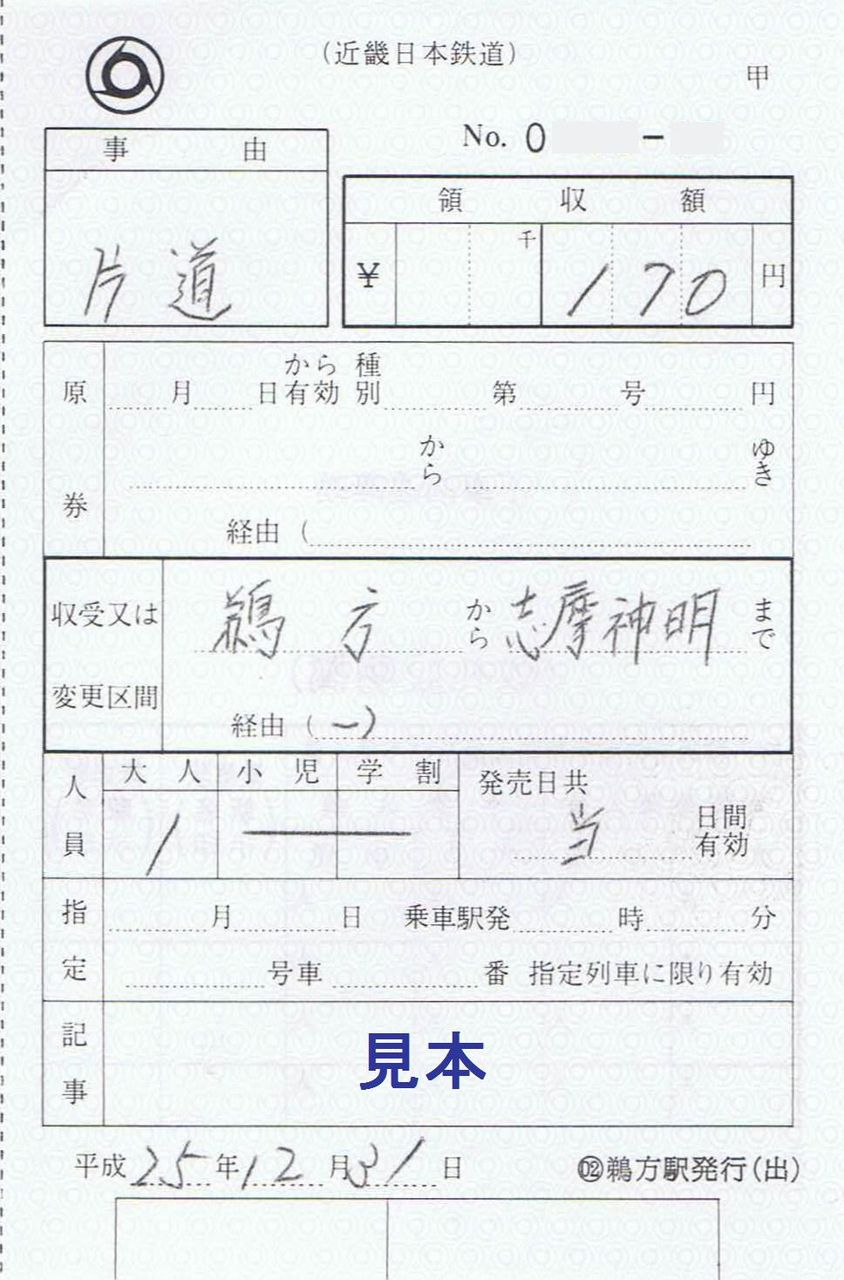 (近畿日本鉄道)
甲
No. 0 -
事由
片道
領収額
¥ 千 170 円
原券
月 日から有効 種別 第 号 円
から ゆき
経由 (
収受又は変更区間
鵜方 から 志摩神明 まで
経由 ( ー )
人員
大人 小児 学割
1
発売日共 当 日間有効
指定
月 日 乗車駅発 時 分
号車 番 指定列車に限り有効
記事
見本
平成25年12月31日
D2鵜方駅発行(出)